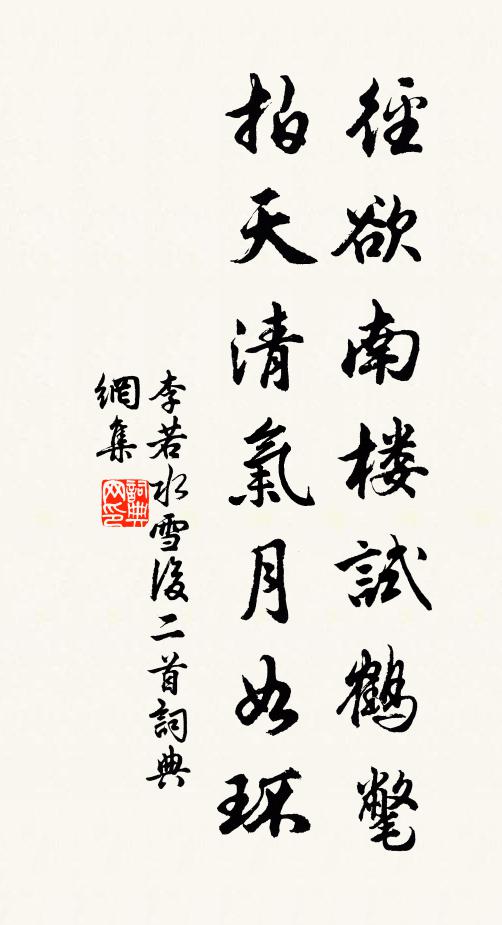 徑欲南楼試鶴氅
拍天清氣月如环
李若水雪後二首詞典
網集